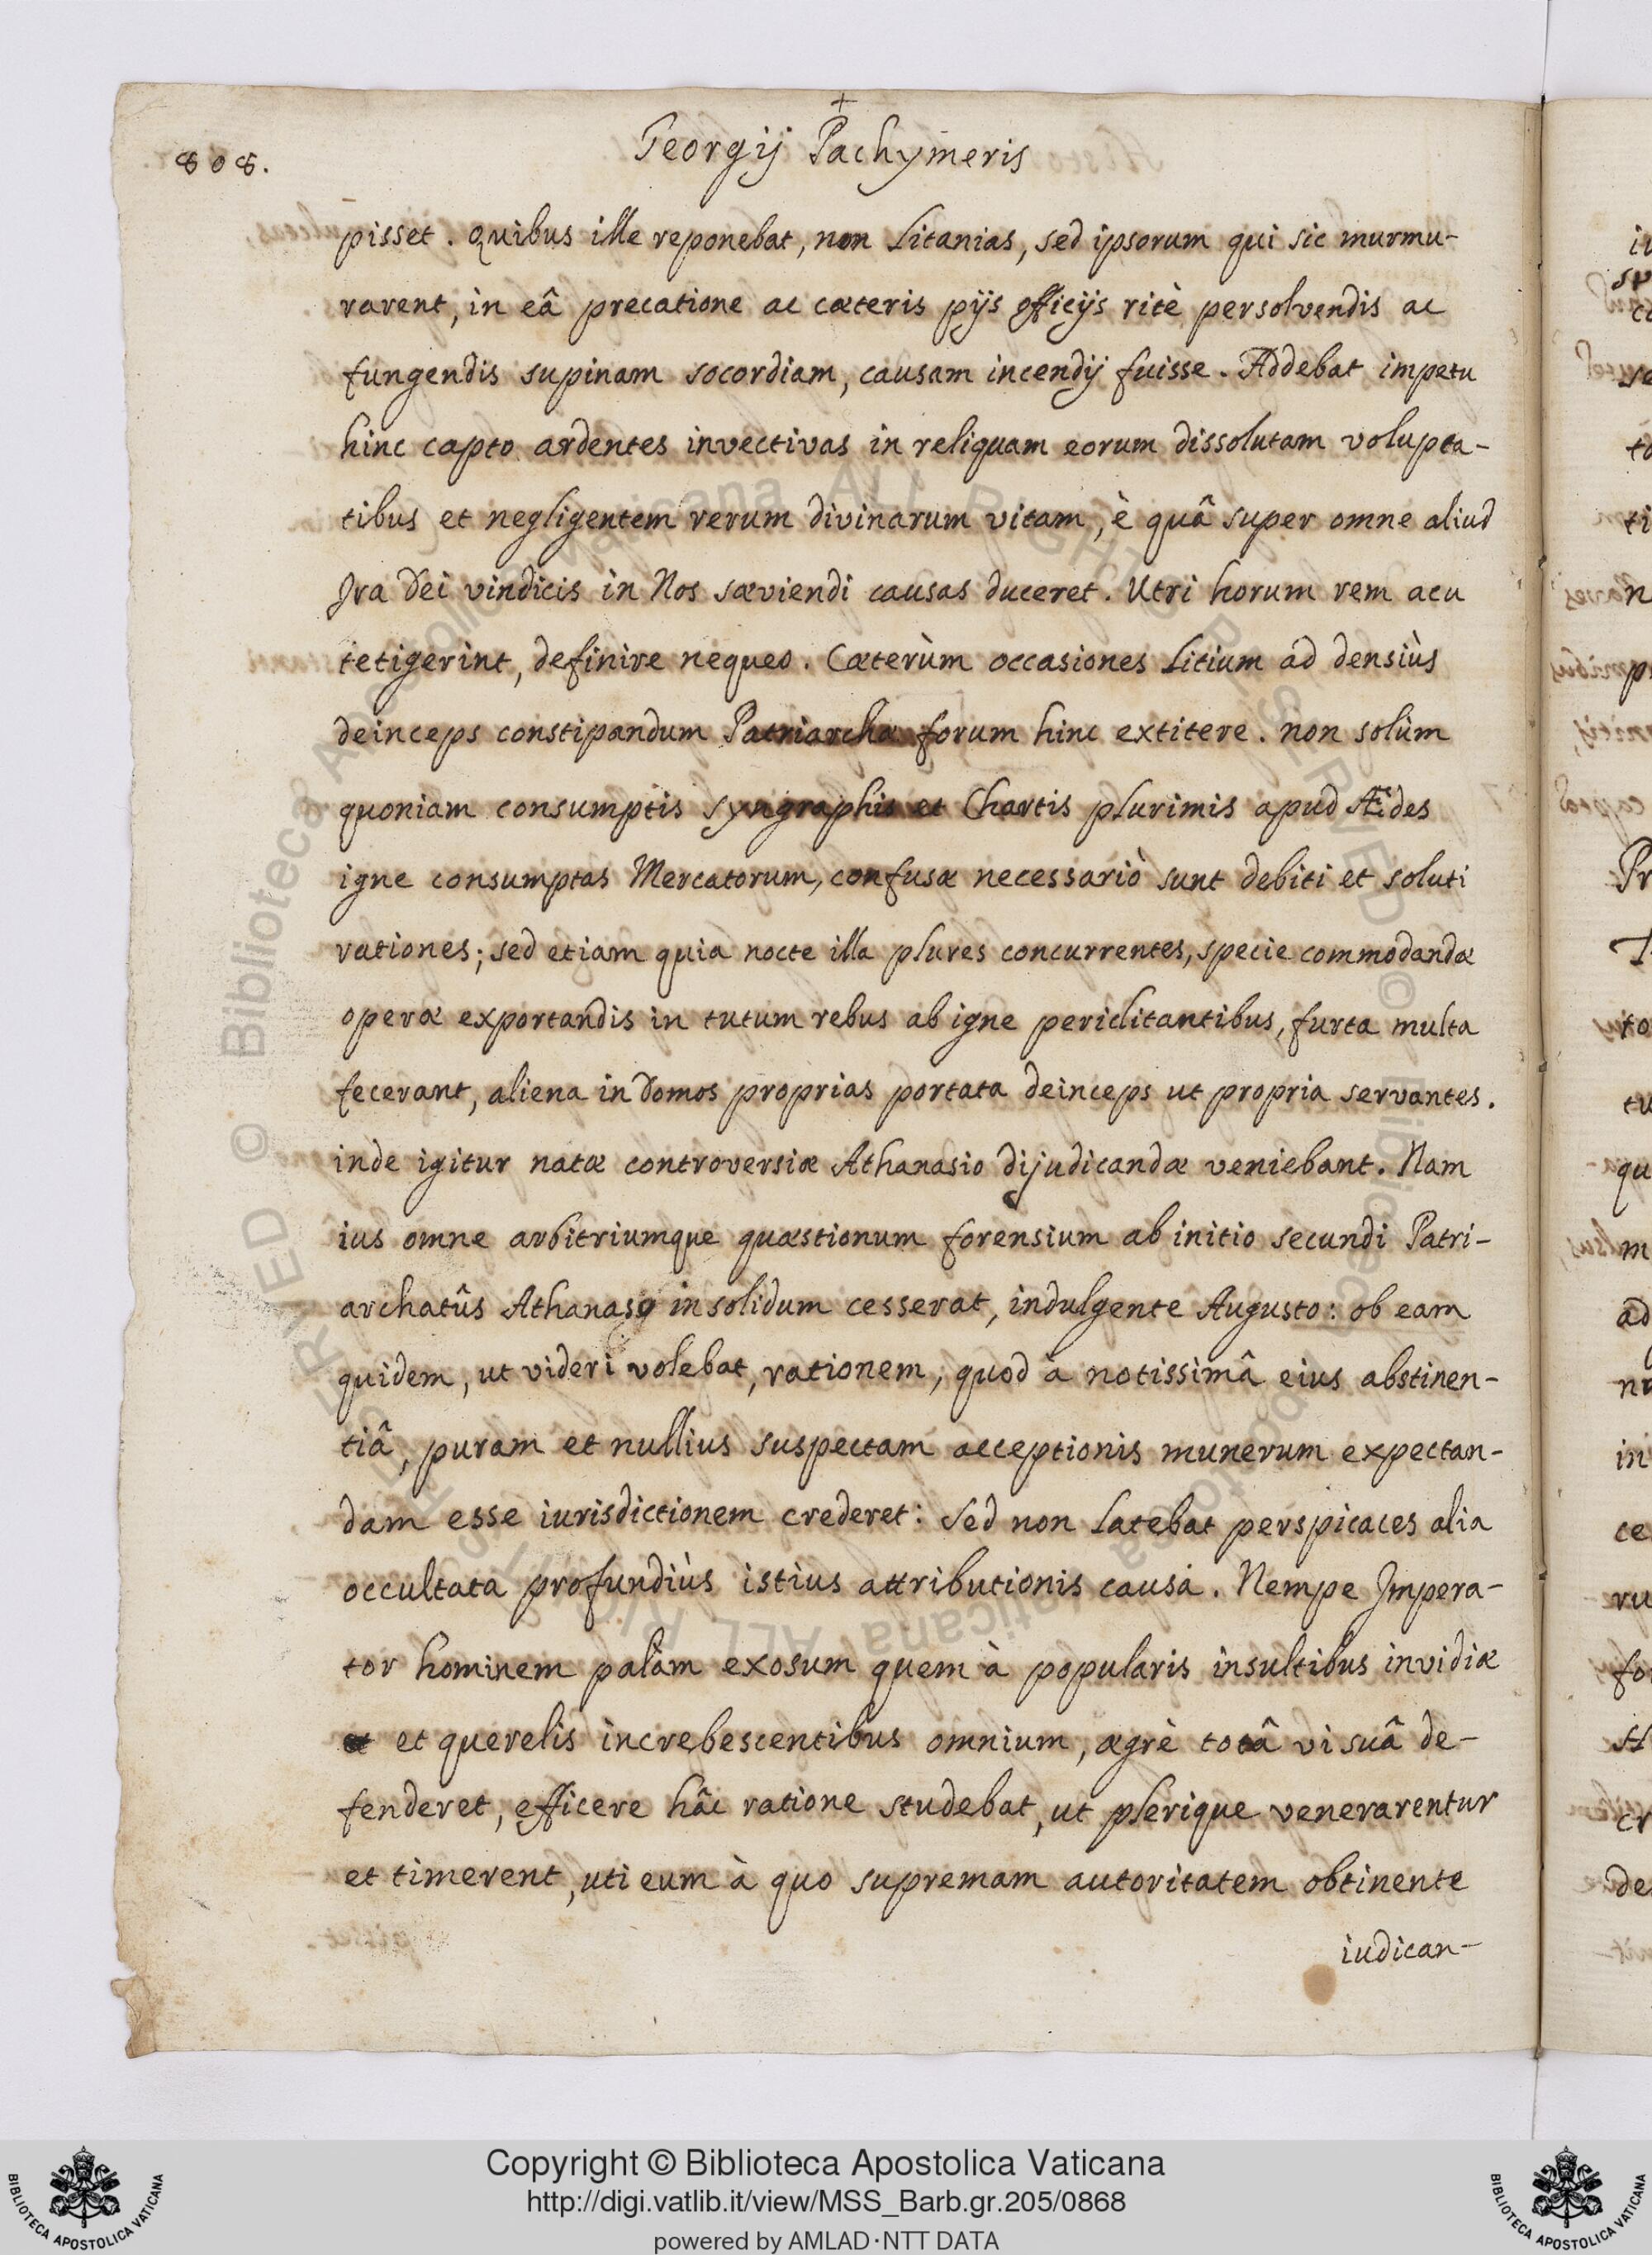 +
808.
Georgij Pachymeris
pisset. Quibus ille reponebat, non Litanias, sed ipsorum qui sic murmu-
rarent, in eâ precatione ac cæteris pijs officijs ritè persolvendis ac
fungendis supinam socordiam, causam incendij fuisse. Addebat impetu
hinc capto ardentes invectivas in reliquam eorum dissolutam volupta-
tibus et negligentem rerum divinarum vitam, è quâ super omne aliud
Ira Dei vindicis in Nos sæviendi causas duceret. Utri horum rem acu
tetigerint, definire nequeo. Cæterùm occasiones Litium ad densiùs
deinceps constipandum Patriarchæ forum hinc extitere. non solùm
quoniam consumptis syngraphis et Chartis plurimis apud Ædes
igne consumptas Mercatorum, confusæ necessariò sunt debiti et soluti
rationes; sed etiam quia nocte illa plures concurrentes, specie commodandæ
operæ exportandis in tutum rebus ab igne periclitantibus, furta multa
fecerant, aliena in Domos proprias portata deinceps ut propria servantes.
inde igitur natæ controversiæ Athanasio dijudicandæ veniebant. Nam
ius omne arbitriumque quæstionum forensium ab initio secundi Patri-
archatûs Athanasio in solidum cesserat, indulgente Augusto: ob eam
quidem, ut videri volebat, rationem, quod à notissimâ eius abstinen-
tiâ, puram et nullius suspectam acceptionis munerum expectan-
dam esse iurisdictionem crederet: Sed non Latebat perspicaces alia
occultata profundiùs istius attributionis causa. Nempe Impera-
tor hominem palàm exosum quem à popularis insultibus invidiæ
et querelis increbescentibus omnium, ægrè totâ vi suâ de-
fenderet, efficere hâc ratione studebat, ut plerique venerarentur
et timerent, uti eum à quo supremam autoritatem obtinente
iudican-
Copyright © Biblioteca Apostolica Vaticana
http://digi.vatlib.it/view/MSS_Barb.gr.205/0868
powered by AMLAD·NTT DATA
BIBLIOTECA APOSTOLICA VATICANA
BIBLIOTECA APOSTOLICA VATICANA